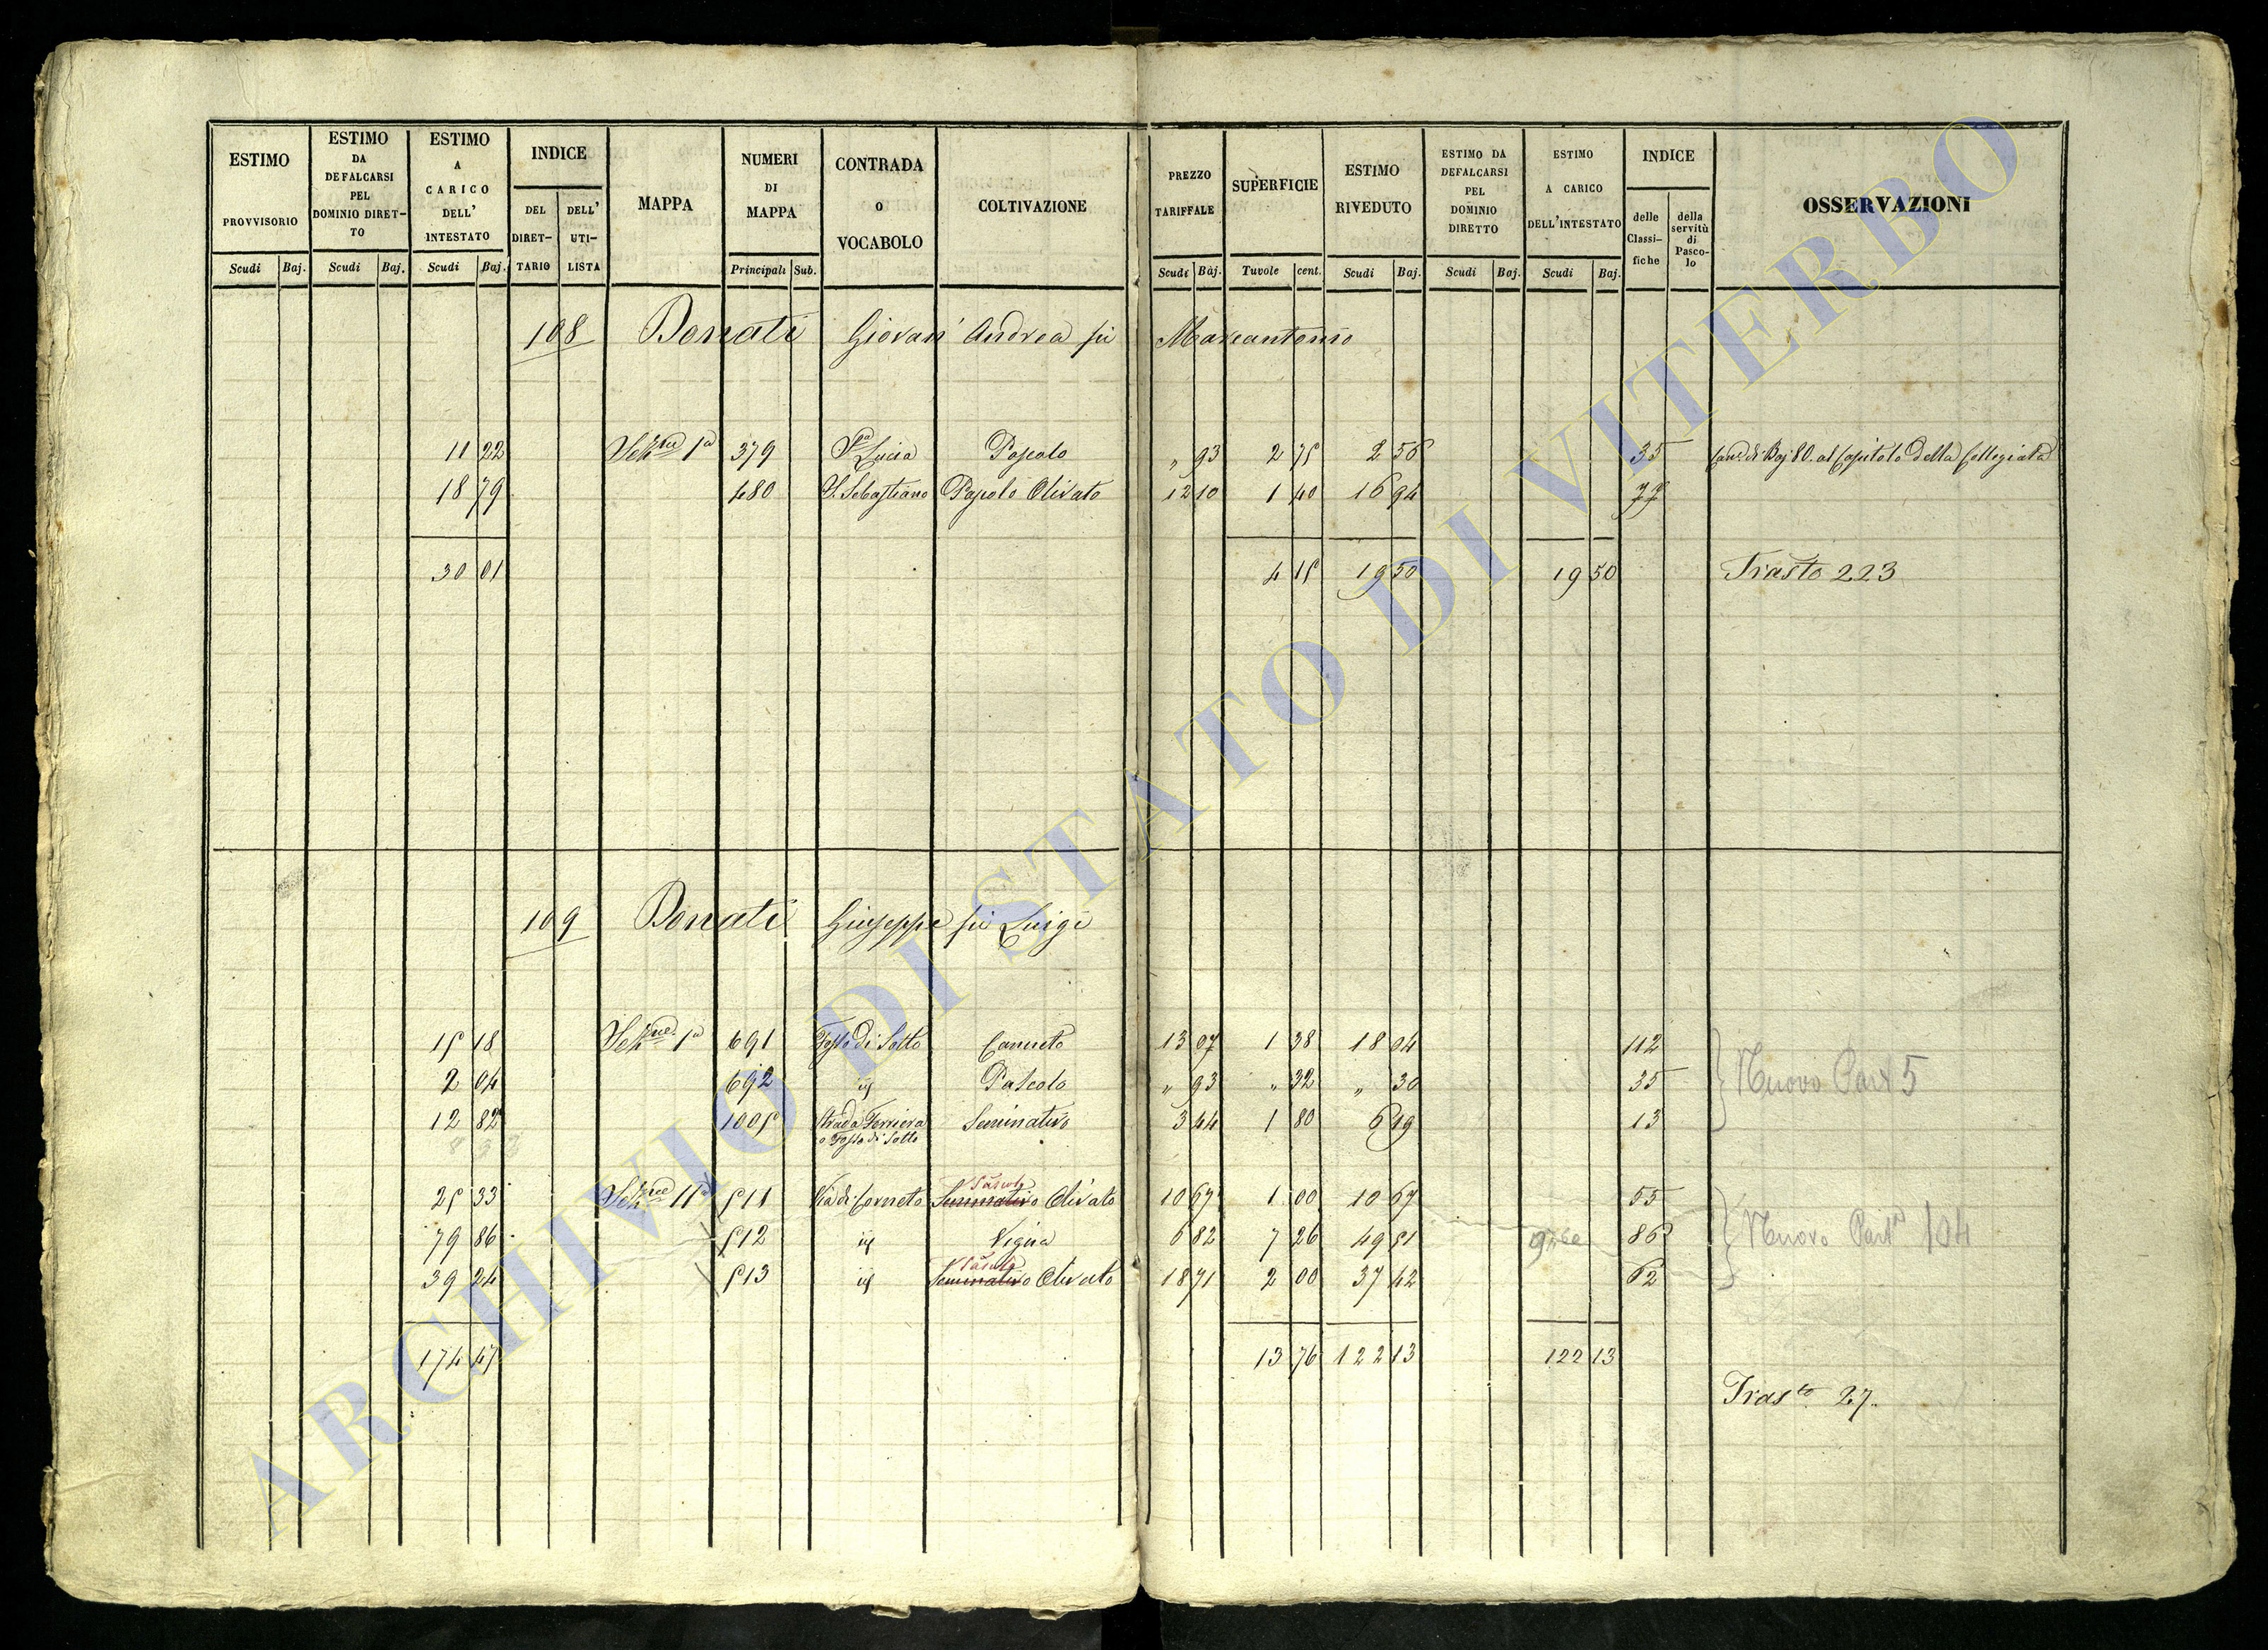 ESTIMO PROVVISORIO Scudi Baj. | ESTIMO DA DEFALCARSI PEL DOMINIO DIRETTO Scudi Baj. | ESTIMO A CARICO DELL' INTESTATO Scudi Baj. | INDICE DEL DIRETTARIO DELL' UTILISTA | MAPPA | NUMERI DI MAPPA Principali Sub. | CONTRADA O VOCABOLO | COLTIVAZIONE | PREZZO TARIFFALE Scudi Baj. | SUPERFICIE Tavole cent. | ESTIMO RIVEDUTO Scudi Baj. | ESTIMO DA DEFALCARSI PEL DOMINIO DIRETTO Scudi Baj. | ESTIMO A CARICO DELL'INTESTATO Scudi Baj. | INDICE delle Classifiche della servitù di Pascolo | OSSERVAZIONI
108 Donati Giovan' Andrea fu Marcantonio
11 22 Sezne 1a 379 Sta Lucia Pascolo " 93 2 75 2 56 35 Can. di Baj 80. al Capitolo della Collegiata
18 79 480 S. Sebastiano Pascolo Olivato 12 10 1 40 16 94 77
30 01 4 15 19 50 19 50 Trasto 223
109 Donati Giuseppe fu Luigi
15 18 Sezne 1a 691 Fosso di Sotto Canneto 13 07 1 38 18 04 112
2 04 692 id Pascolo " 93 " 32 " 30 35 Nuovo Part 5
12 82 1005 Strada Ferriera o Fosso di Sotto Seminativo 3 44 1 80 6 19 13
Pascolo
25 33 Sezne 11a 511 Via di Corneto Seminativo Olivato 10 67 1 00 10 67 55
79 86 512 id Vigna 6 82 7 26 49 51 86 Nuovo Part 104
Pascolo
39 24 513 id Seminativo Olivato 18 71 2 00 37 42 62
174 47 13 76 122 13 122 13
Trasto 27.
ARCHIVIO DI STATO DI VITERBO